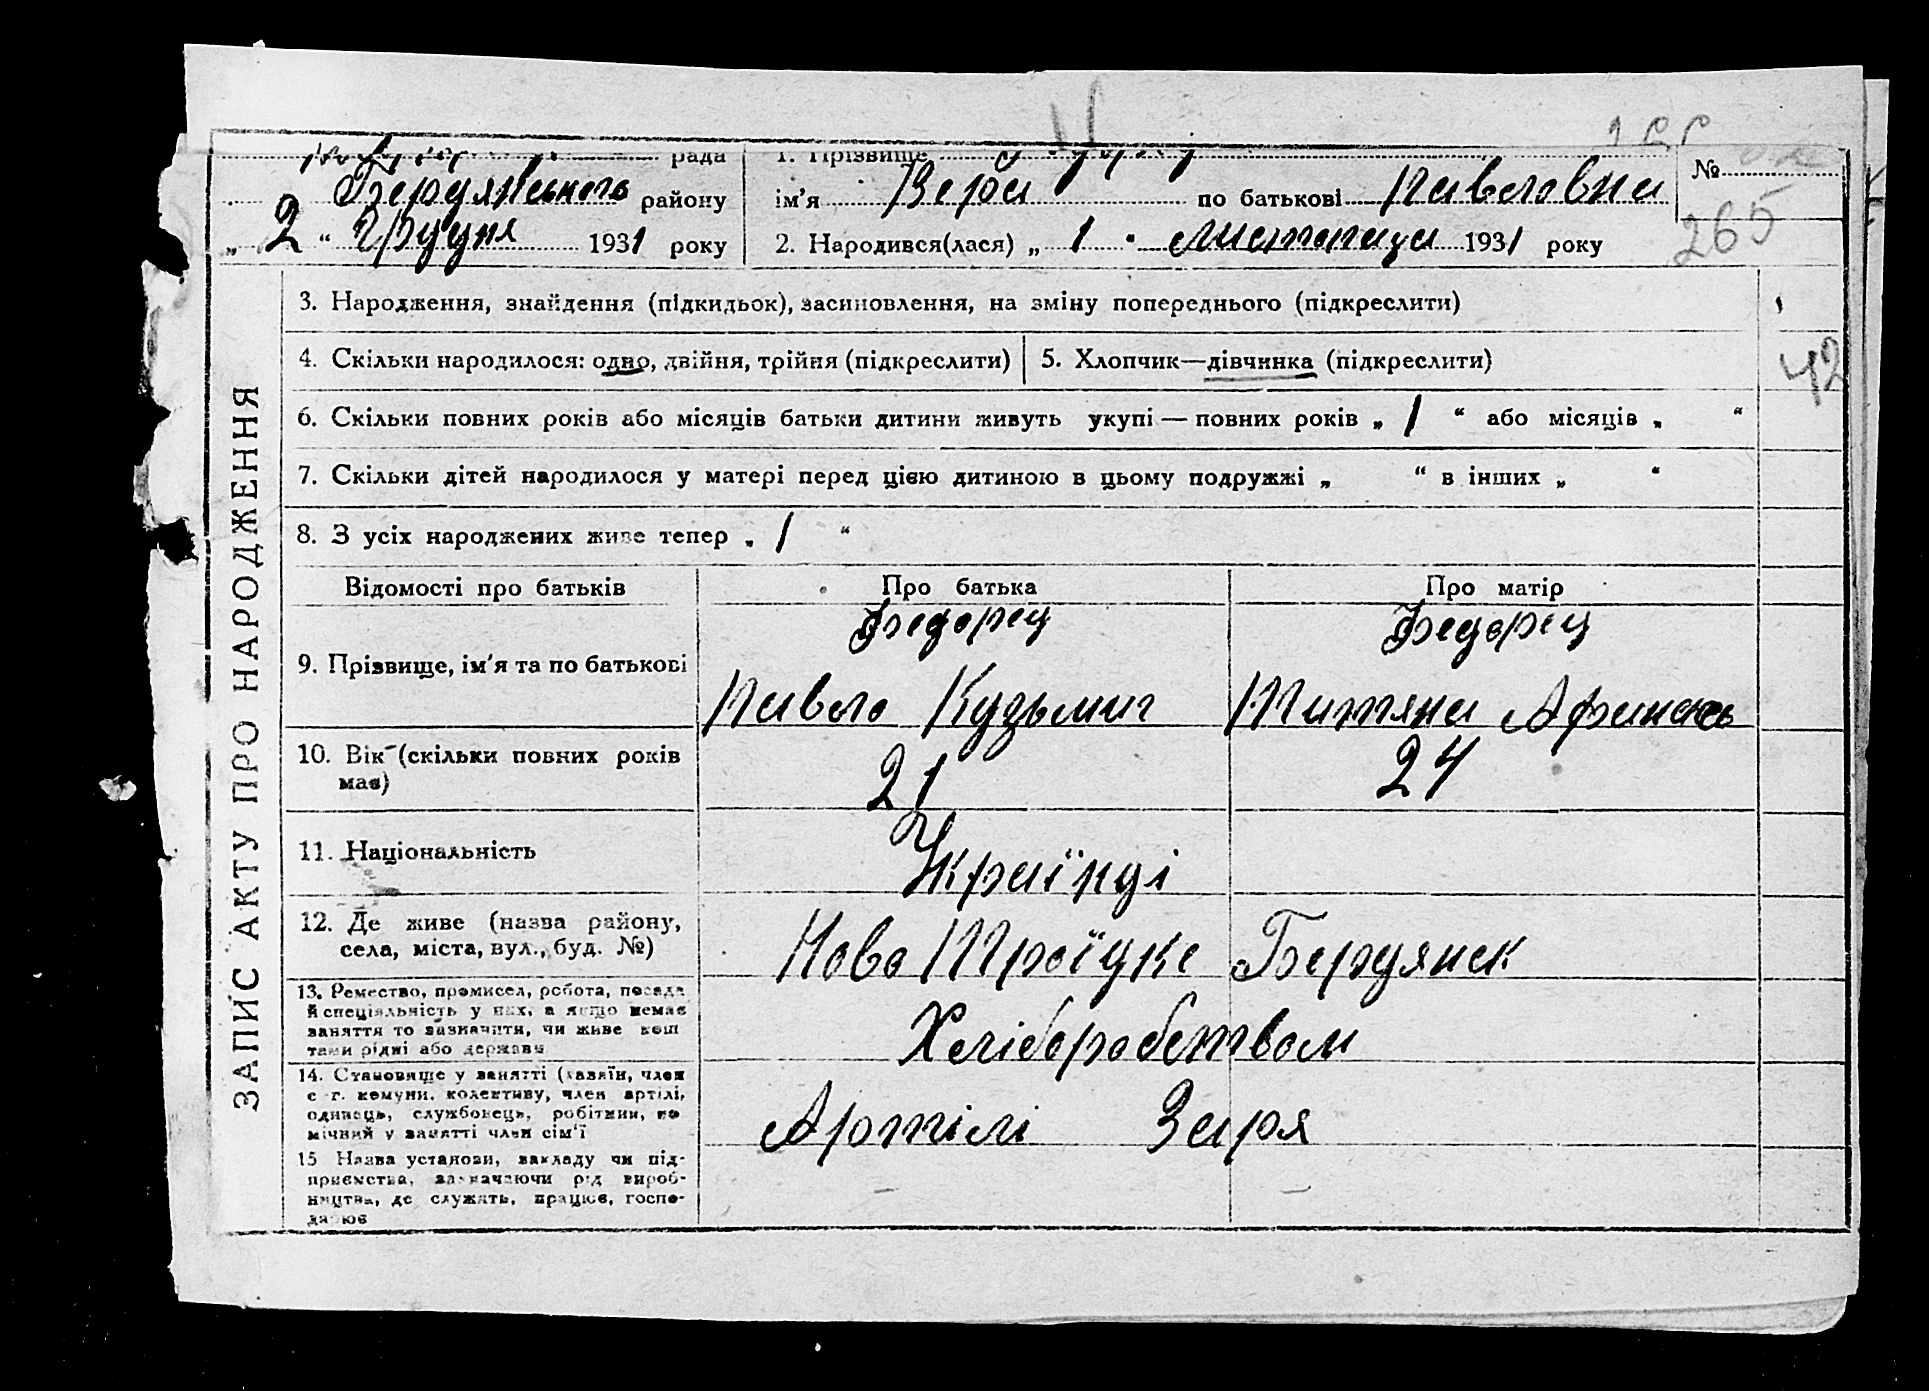 рада
1. Прізвище
№
Бердянського району
ім'я Вера по батькові Павловна
265
„ 2 “ Грудня 1931 року
2. Народився(лася) „ 1 “ листопада 1931 року
ЗАПИС АКТУ ПРО НАРОДЖЕННЯ
3. Народження, знайдення (підкидьок), засиновлення, на зміну попереднього (підкреслити)
4. Скільки народилося: одно, двійня, трійня (підкреслити)
5. Хлопчик—дівчинка (підкреслити)
42
6. Скільки повних років або місяців батьки дитини живуть укупі — повних років „ 1 “ або місяців „ “
7. Скільки дітей народилося у матері перед цією дитиною в цьому подружжі „ “ в інших „ “
8. З усіх народжених живе тепер „ 1 “
Відомості про батьків
Про батька
Про матір
9. Прізвище, ім'я та по батькові
Федорец
Павло Кузьмич
Федорец
Татяна Афанась
10. Вік (скільки повних років
має)
21
24
11. Національність
Українці
12. Де живе (назва району,
села, міста, вул., буд. №)
Ново Троїцке Бердянск
13. Ремество, промисел, робота, посада
й спеціяльність у них, а якщо немає
заняття то зазначити, чи живе кош
тами рідні або держави
Хліборобством
14. Становище у занятті (хазяїн, член
с.-г. комуни, колективу, член артілі,
одинець, службовець, робітник, по
мічний у занятті член сім'ї
Артілі Заря
15 Назва установи, закладу чи під-
приємства, зазначаючи рід вироб-
ництва, де служить, працює, госпо-
дарює